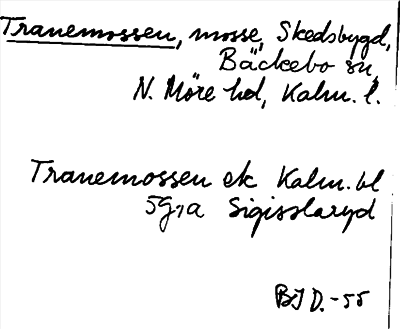 Tranemossen, mosse, Skedsbygd,
Bäckebo sn,
N. Möre hd, Kalm. l.
Tranemossen ek Kalm. bl
5G,1a Sigisslaryd
BJD.-55